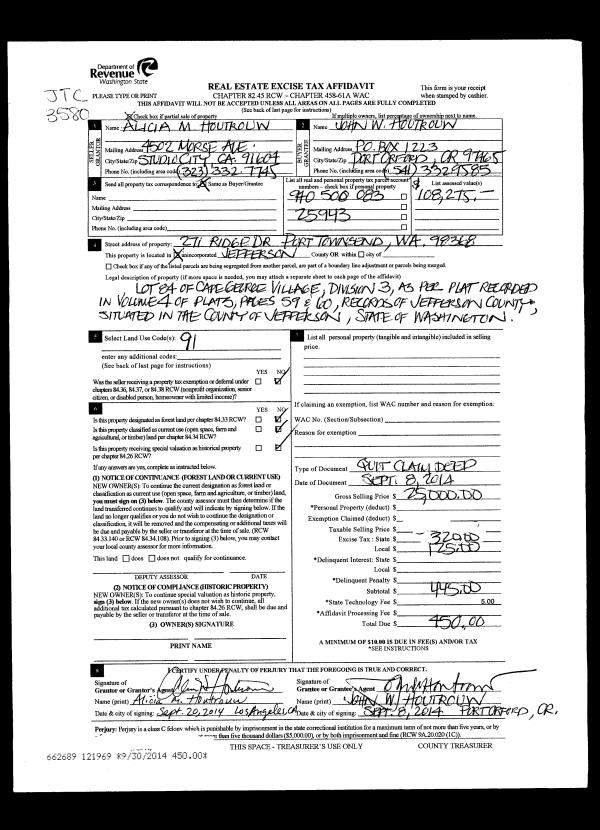 Department of
Revenue
Washington State
JTC
3580
PLEASE TYPE OR PRINT
REAL ESTATE EXCISE TAX AFFIDAVIT
CHAPTER 82.45 RCW – CHAPTER 458-61A WAC
This form is your receipt
when stamped by cashier.
THIS AFFIDAVIT WILL NOT BE ACCEPTED UNLESS ALL AREAS ON ALL PAGES ARE FULLY COMPLETED
(See back of last page for instructions)
Check box if partial sale of property
If multiple owners, list percentage of ownership next to name.
1 Name ALICIA M HOUTROUW
2 Name JOHN W. HOUTROUW
SELLER GRANTOR
BUYER GRANTEE
Mailing Address 4502 MORSE AVE.
Mailing Address P.O. BOX 1223
City/State/Zip STUDIO CITY, CA. 91604
City/State/Zip PORT ORFORD, OR 97465
Phone No. (including area code) (323) 332.7745
Phone No. (including area code) (541) 332 9585
3 Send all property tax correspondence to: Same as Buyer/Grantee
List all real and personal property tax parcel account
numbers – check box if personal property
List assessed value(s)
Name
940 500 083
$ 108,275.-
Mailing Address
25943
City/State/Zip
Phone No. (including area code)
4 Street address of property: 271 RIDGE DR PORT TOWNSEND, WA. 98368
This property is located in unincorporated JEFFERSON County OR within city of
Check box if any of the listed parcels are being segregated from another parcel, are part of a boundary line adjustment or parcels being merged.
Legal description of property (if more space is needed, you may attach a separate sheet to each page of the affidavit)
LOT 84 OF CAPE GEORGE VILLAGE, DIVISION 3, AS PER PLAT RECORDED
IN VOLUME 4 OF PLATS, PAGES 59 & 60, RECORDS OF JEFFERSON COUNTY,
SITUATED IN THE COUNTY OF JEFFERSON, STATE OF WASHINGTON.
5 Select Land Use Code(s): 91
enter any additional codes:
(See back of last page for instructions)
YES NO
Was the seller receiving a property tax exemption or deferral under
chapters 84.36, 84.37, or 84.38 RCW (nonprofit organization, senior
citizen, or disabled person, homeowner with limited income)?
6 YES NO
Is this property designated as forest land per chapter 84.33 RCW?
Is this property classified as current use (open space, farm and
agricultural, or timber) land per chapter 84.34 RCW?
Is this property receiving special valuation as historical property
per chapter 84.26 RCW?
If any answers are yes, complete as instructed below.
(1) NOTICE OF CONTINUANCE (FOREST LAND OR CURRENT USE)
NEW OWNER(S): To continue the current designation as forest land or
classification as current use (open space, farm and agriculture, or timber) land,
you must sign on (3) below. The county assessor must then determine if the
land transferred continues to qualify and will indicate by signing below. If the
land no longer qualifies or you do not wish to continue the designation or
classification, it will be removed and the compensating or additional taxes will
be due and payable by the seller or transferor at the time of sale. (RCW
84.33.140 or RCW 84.34.108). Prior to signing (3) below, you may contact
your local county assessor for more information.
This land does does not qualify for continuance.
DEPUTY ASSESSOR DATE
(2) NOTICE OF COMPLIANCE (HISTORIC PROPERTY)
NEW OWNER(S): To continue special valuation as historic property,
sign (3) below. If the new owner(s) does not wish to continue, all
additional tax calculated pursuant to chapter 84.26 RCW, shall be due and
payable by the seller or transferor at the time of sale.
(3) OWNER(S) SIGNATURE
PRINT NAME
7 List all personal property (tangible and intangible) included in selling
price.
If claiming an exemption, list WAC number and reason for exemption:
WAC No. (Section/Subsection)
Reason for exemption
Type of Document QUIT CLAIM DEED
Date of Document SEPT. 8, 2014
Gross Selling Price $ 25,000.00
*Personal Property (deduct) $
Exemption Claimed (deduct) $
Taxable Selling Price $
Excise Tax : State $ 320.00
Local $ 125.00
*Delinquent Interest: State $
Local $
*Delinquent Penalty $
Subtotal $ 445.00
*State Technology Fee $ 5.00
*Affidavit Processing Fee $
Total Due $ 450.00
A MINIMUM OF $10.00 IS DUE IN FEE(S) AND/OR TAX
*SEE INSTRUCTIONS
8 I CERTIFY UNDER PENALTY OF PERJURY THAT THE FOREGOING IS TRUE AND CORRECT.
Signature of
Grantor or Grantor's Agent
Signature of
Grantee or Grantee's Agent
Name (print) Alicia M. Houtrouw
Name (print) JOHN W. HOUTROUW
Date & city of signing: Sept. 20, 2014 Los Angeles, CA
Date & city of signing: SEPT. 8, 2014 PORT ORFORD, OR.
Perjury: Perjury is a class C felony which is punishable by imprisonment in the state correctional institution for a maximum term of not more than five years, or by
than five thousand dollars ($5,000.00), or by both imprisonment and fine (RCW 9A.20.020 (1C)).
THIS SPACE - TREASURER'S USE ONLY
COUNTY TREASURER
662689 121969 *9/30/2014 450.00*